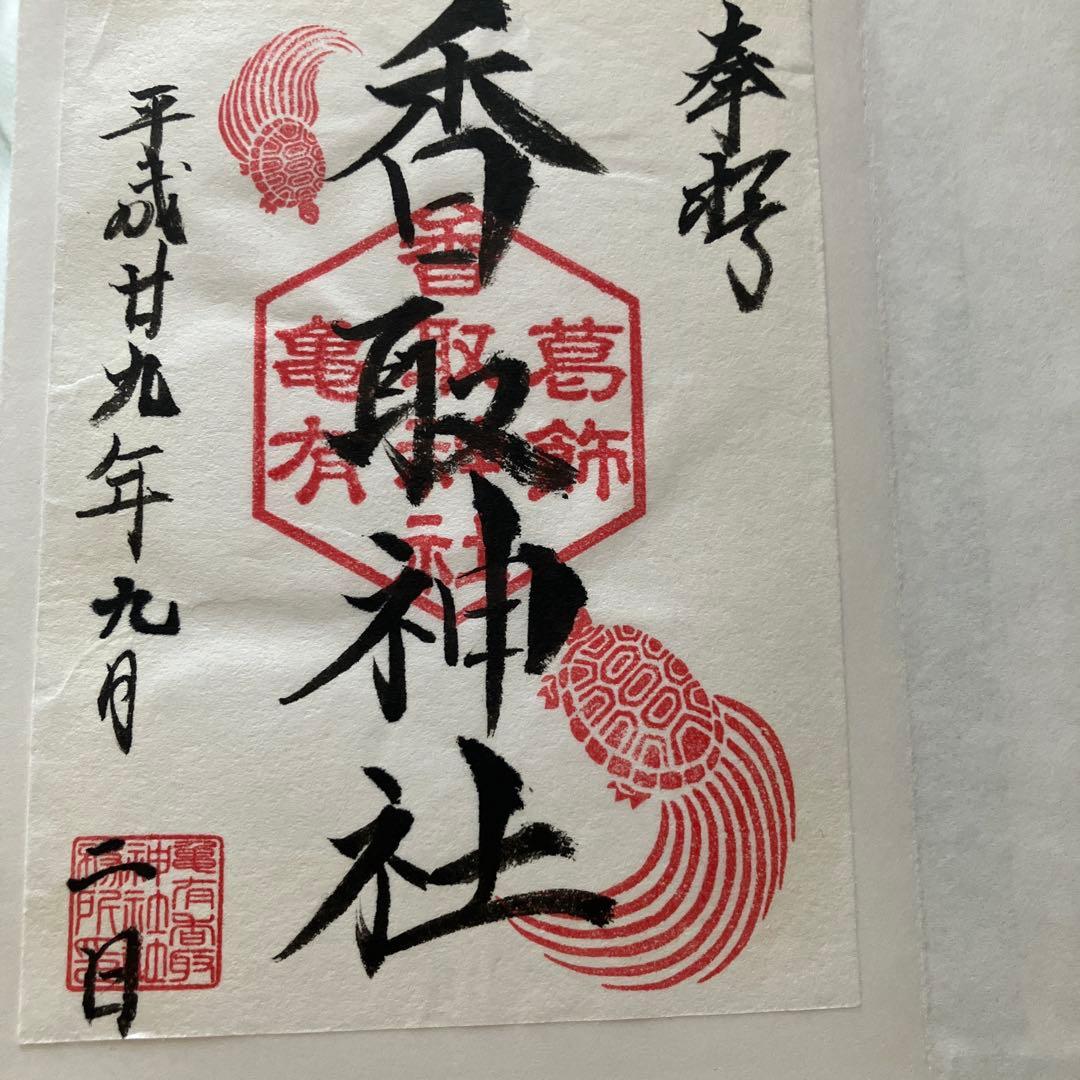 奉拝
葛飾
香取神社
香取神社
亀有
平成廿九年九月二日
亀有香取
神社社
務所印